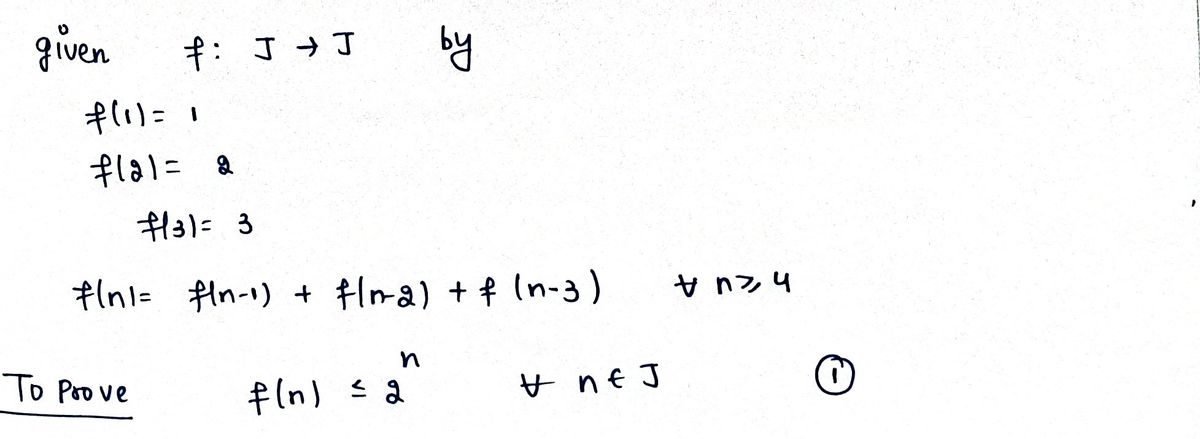 given f: J → J by
f(1)= 1
f(2)= 2
f(3)= 3
f(n)= f(n-1) + f(n-2) + f(n-3) ∀ n≥4
To Prove f(n) ≤ 2ⁿ ∀ n∈J ①